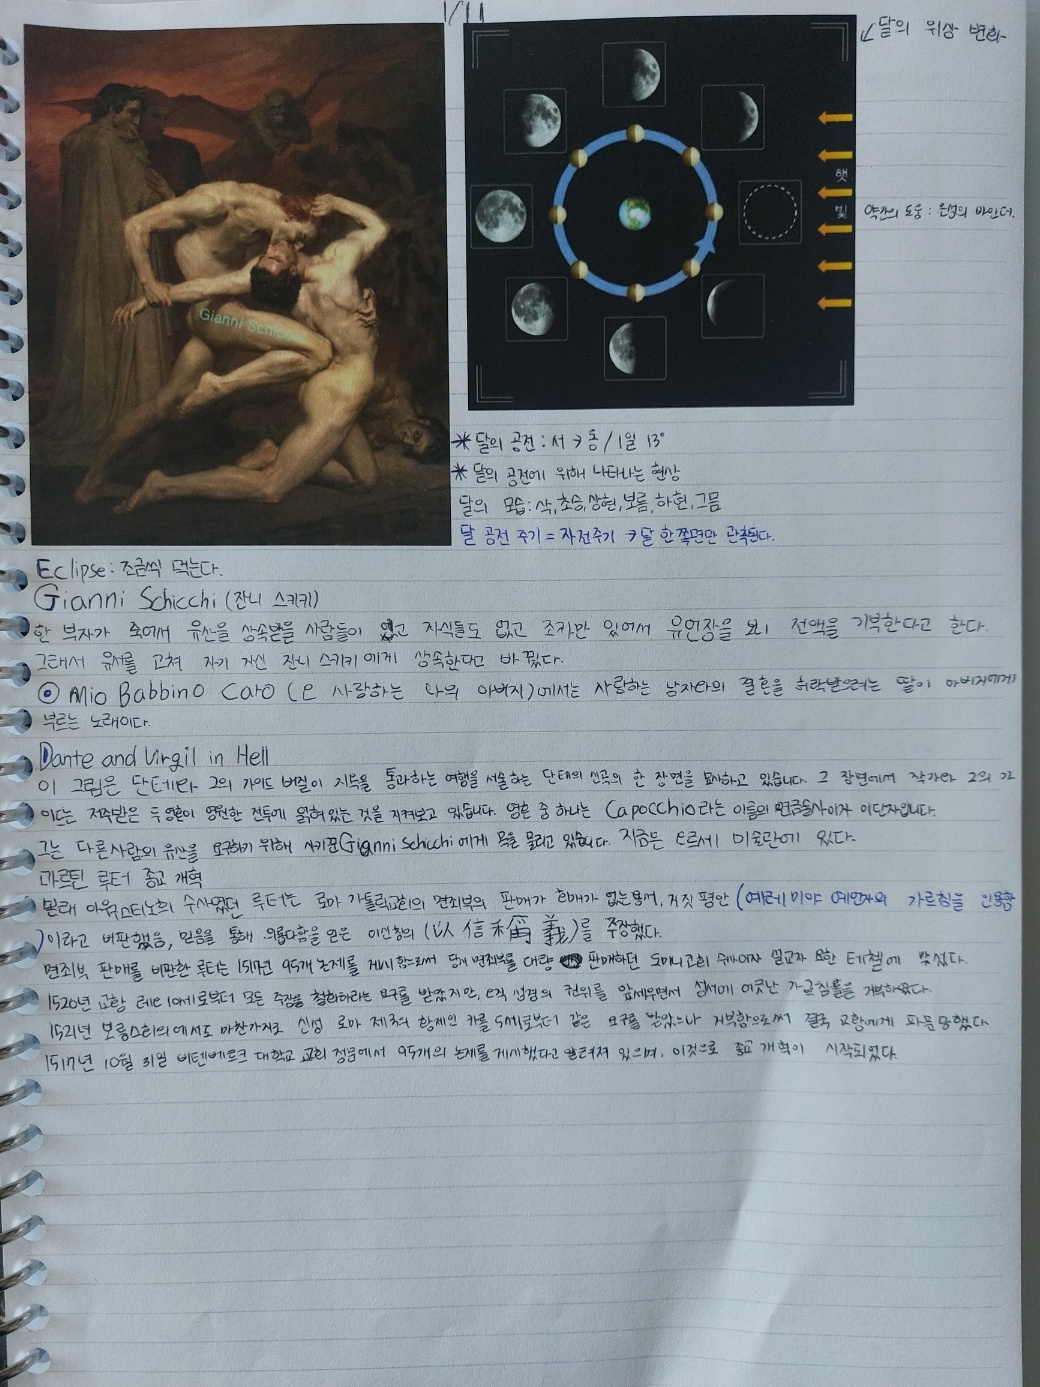 1/11
↙달의 위상 변화
Gianni Schicchi
햇
빛
약간의 도움: 은성의 바인더.
* 달의 공전: 서→동 / 1일 13°
* 달의 공전에 위해 나타나는 현상
달의 모습: 삭, 초승, 상현, 보름, 하현, 그믐
달 공전 주기 = 자전주기 → 달 한쪽면만 관측된다.
Eclipse: 조금씩 먹는다.
Gianni Schicchi (잔니 스키키)
한 부자가 죽어서 유산을 상속받을 사람들이 없고 자식들도 없고 조카만 있어서 유언장을 보니 전액을 기부한다고 한다.
그래서 유서를 고쳐 자기 자신 잔니 스키키에게 상속한다고 바꿨다.
O Mio Babbino Caro (오 사랑하는 나의 아버지)에서는 사랑하는 남자와의 결혼을 허락받으려는 딸이 아버지에게
부르는 노래이다.
Dante and Virgil in Hell
이 그림은 단테와 그의 가이드 버질이 지옥을 통과하는 여행을 서술하는 단테의 신곡의 한 장면을 묘사하고 있습니다. 그 장면에서 작가와 그의 가
이드는 저주받은 두 영혼이 영원한 전투에 얽혀있는 것을 지켜보고 있습니다. 영혼 중 하나는 Capocchio라는 이름의 연금술사이자 이단자입니다.
그는 다른사람의 유산을 요구하기 위해 사기꾼 Gianni Schicchi에게 목을 물리고 있습니다. 지금은 오르세 미술관에 있다.
마르틴 루터 종교 개혁
본래 아우구스티노회 수사였던 루터는 로마 가톨릭교회의 면죄부의 판매가 회개가 없는용서, 거짓 평안 (예레미야 예언자의 가르침을 인용함
)이라고 비판했음, 믿음을 통해 의롭다함을 얻은 이신칭의 (以信稱義)를 주장했다.
면죄부 판매를 비판한 루터는 1517년 95개 논제를 게시함으로써 당시 면죄부를 대량 판매하던 도미니코회 수사이자 설교자 요한 테첼에 맞섰다.
1520년 교황 레오 10세로부터 모든 주장을 철회하라는 요구를 받았지만, 오직 성경의 권위를 앞세우면서 성서에 어긋난 가르침들을 거부하였다.
1521년 보름스회의에서도 마찬가지로 신성 로마 제국의 황제인 카를 5세로부터 같은 요구를 받았으나 거부함으로써 결국 교황에게 파문 당했다
1517년 10월 31일 비텐베르크 대학교 교회 정문에서 95개의 논제를 게시했다고 알려져 있으며, 이것으로 종교개혁이 시작되었다.